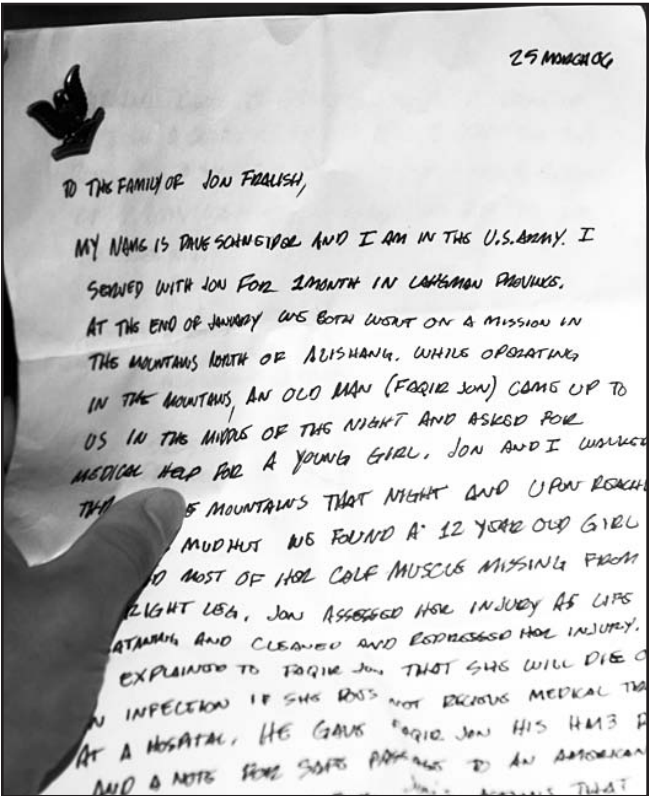 25 MARCH 06
TO THE FAMILY OF JON FRALISH,
MY NAME IS DAVE SCHNEIDER AND I AM IN THE U.S. ARMY. I
SERVED WITH JON FOR 1 MONTH IN LAHGMAN PROVINCE.
AT THE END OF JANUARY WE BOTH WENT ON A MISSION IN
THE MOUNTAINS NORTH OF ALISHANG. WHILE OPERATING
IN THE MOUNTAINS, AN OLD MAN (FAQIR JON) CAME UP TO
US IN THE MIDDLE OF THE NIGHT AND ASKED FOR
MEDICAL HELP FOR A YOUNG GIRL. JON AND I WALKED
MOUNTAINS THAT NIGHT AND UPON REACHI
MUD HUT WE FOUND A 12 YEAR OLD GIRL
MOST OF HER CALF MUSCLE MISSING FROM
RIGHT LEG. JON ASSESSED HER INJURY AS LIFE
AND CLEANED AND REDRESSED HER INJURY.
EXPLAINED TO FAQIR JON THAT SHE WILL DIE O
INFECTION IF SHE DOES NOT RECIEVE MEDICAL
AT A HOSPITAL. HE GAVE FAQIR JON HIS HM3
AND A NOTE FOR SAFE PASSAGE TO AN AMERICAN
THAT